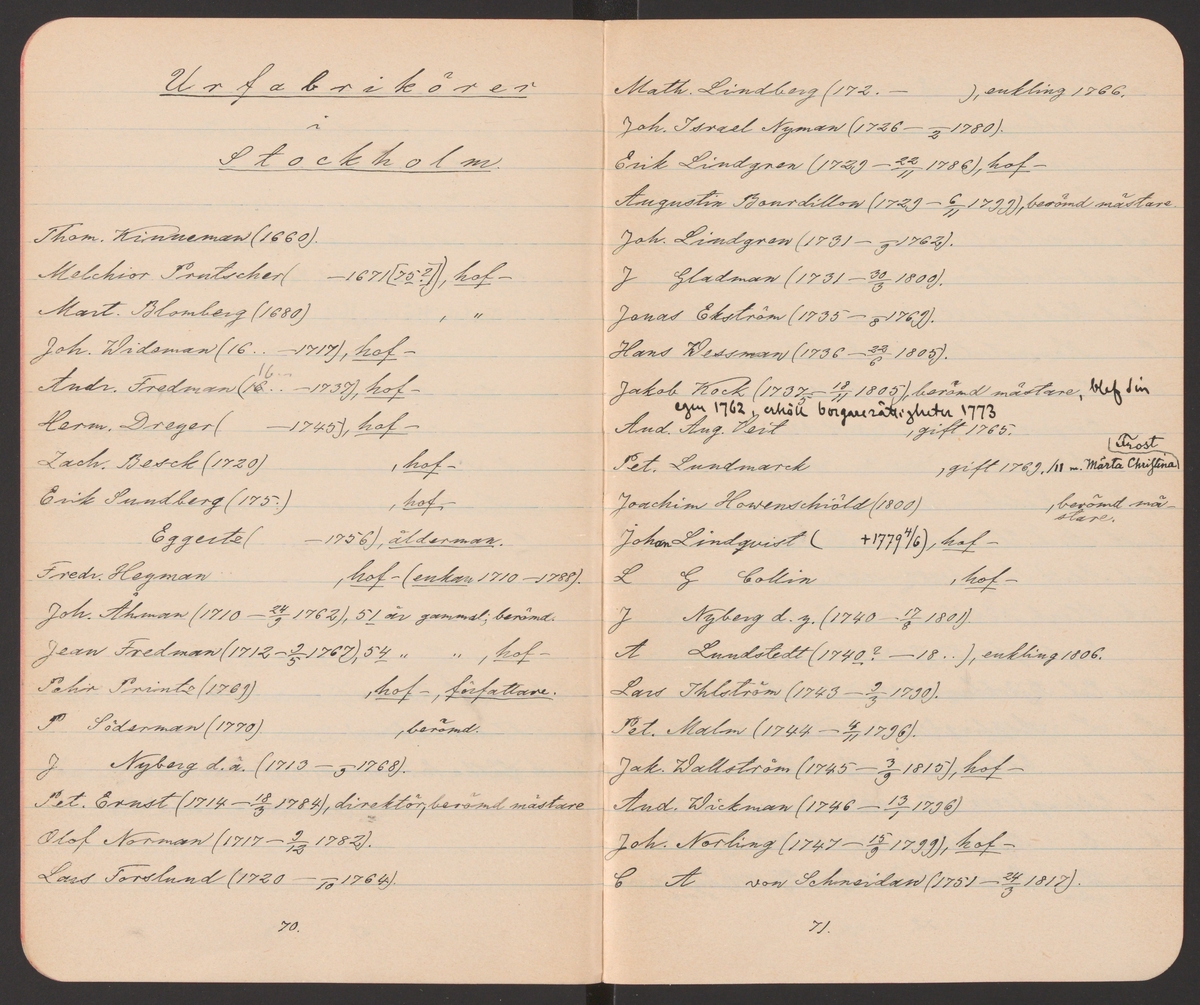 Urfabrikörer
i
Stockholm.
Thom. Kinneman (1660).
Melchior Prutscher ( —1671 [75?]), hof—
Mart. Blomberg (1680) , "
Joh. Wideman (16.. —1717), hof—
Andr. Fredman (16.. —1737), hof—
Herm. Dreyer ( —1745), hof—
Zach. Besck (1720) , hof—
Erik Sundberg (175.) , hof—
Eggertz ( —1756), ålderman.
Fredr. Heyman , hof— (enkan 1710—1788).
Joh. Åhman (1710—24/9 1762), 51 år gammal; berömd.
Jean Fredman (1712—9/5 1767), 54 " " , hof—
Pehr Printz (1769) , hof—, författare.
P Söderman (1770) , berömd.
J Nyberg d.ä. (1713—/9 1768).
Pet. Ernst (1714—18/3 1784), direktör, berömd mästare
Olof Norman (1717—9/12 1782).
Lars Forslund (1720—/10 1764).
70.
Math. Lindberg (172. — ), enkling 1766.
Joh. Israel Nyman (1726—/2 1780).
Erik Lindgren (1729—22/11 1786), hof—
Augustin Bourdillon (1729—6/11 1799), berömd mästare
Joh. Lindgren (1731—/9 1762).
J Gladman (1731—30/3 1800).
Jonas Ekström (1735—/8 1769).
Hans Wessman (1736—22/6 1805).
Jakob Kock (1737—18/11 1805), berömd mästare, blef sin
egen 1762, erhöll borgarerättigheter 1773
And. Aug. Veit , gift 1765.
(Frost
Pet. Lundmarck , gift 1769. /11 m. Märta Christina)
Joachim Howenschiöld (1800) , berömd mä-
stare.
Johan Lindqvist ( +1779 4/6), hof—
L G Collin , hof—
J Nyberg d.y. (1740—17/8 1801).
A Lundstedt (1740? —18..), enkling 1806.
Lars Ihlström (1743—9/3 1790).
Pet. Malm (1744—4/11 1796).
Jak. Wallström (1745—3/9 1815), hof—
And. Wickman (1746—13/1 1796)
Joh. Norling (1747—15/9 1799), hof—
C A von Schneidau (1751—24/3 1817).
71.